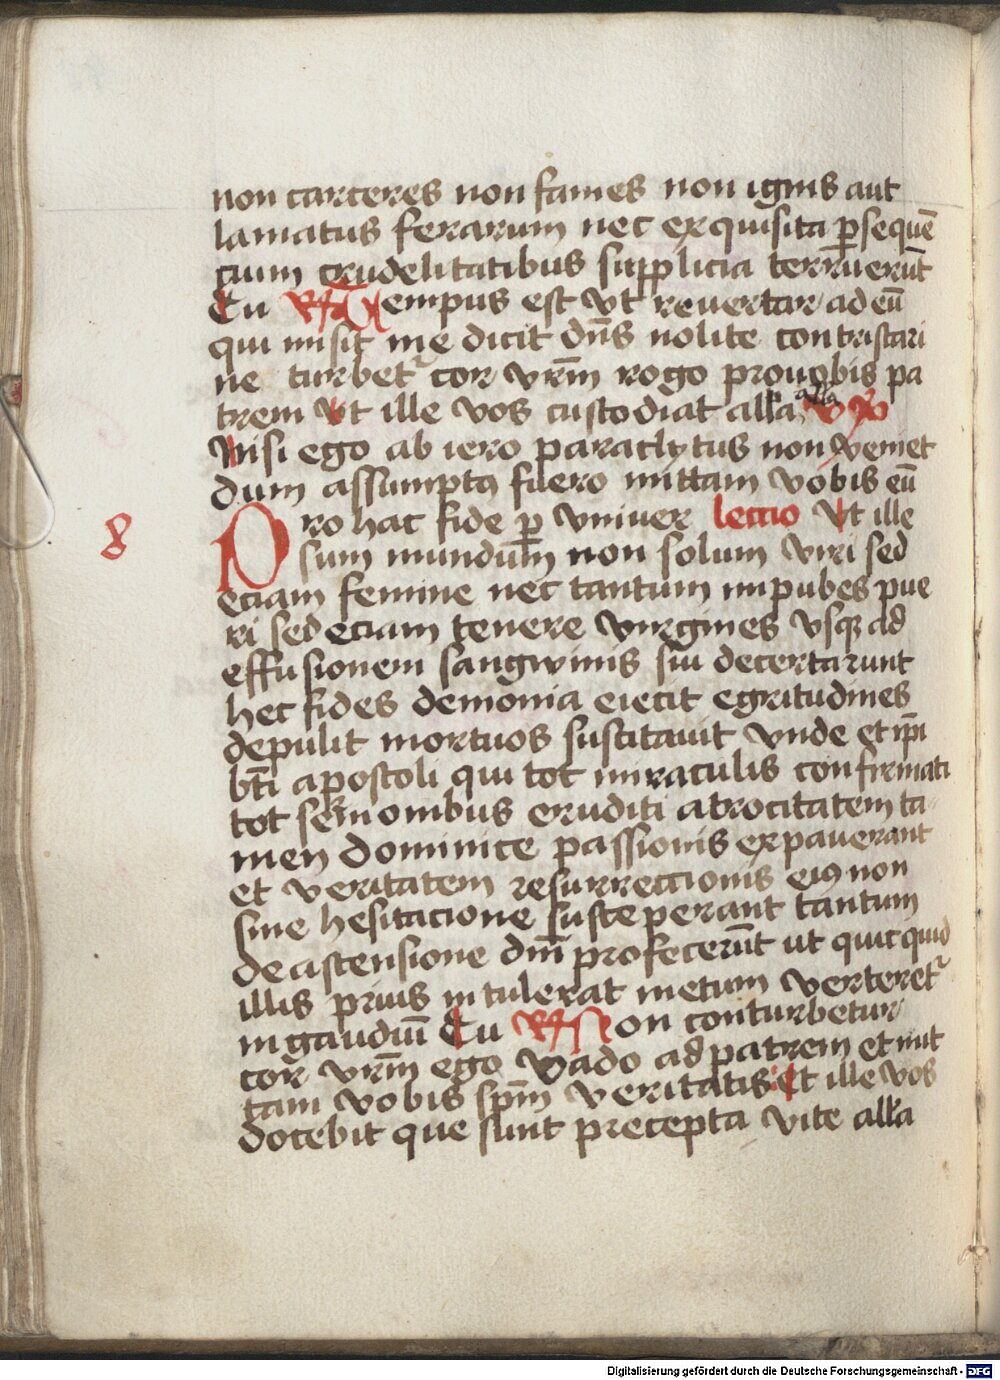 non carceres non fames non ignis aut
laniatus ferarum nec exquisita ꝑsequē
cium crudelitatibus supplicia terruerūt
Tu Rſ Tempus est vt reuertar ad eū
qui misit me dicit dn̄s nolite contristari
ne turbet᷑ cor vr̄m rogo pro uobis pa
trem vt ille vos custodiat alla alla V
Nisi ego ab iero paraclytus non veniet
dum assumptꝰ fuero mittam vobis eū
8 Pro hac fide ꝑ vniuer lectio Vt ille
sum mundum non solum viri sed
eciam femine nec tantum inpubes pue
ri sed eciam tenere virgines vsqꝫ ad
effusionem sangwinis sui decertarunt
hec fides demonia eiecit egritudines
depulit mortuos suscitauit vnde et ip̄i
bt̄i apostoli qui tot miraculis confirmati
tot sermonibus eruditi atrocitatem ta
men dominice passionis expauerant
et veritatem resurreccionis eiꝰ non
sine hesitacione susceperant tantum
de ascensione dn̄i profecerūt ut quicquid
illis prius intulerat metum verteret᷑
in gaudiū Tu Rſ Non conturbetur
cor vr̄m ego vado ad patrem et mit
tam vobis sp̄m veritatis Et ille vos
docebit que sunt precepta vite alla
Digitalisierung gefördert durch die Deutsche Forschungsgemeinschaft - DFG